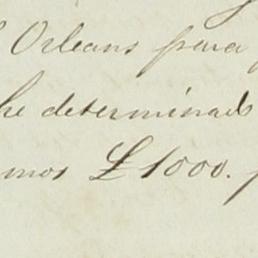 Orleans para
he determinado
mos £1000. p